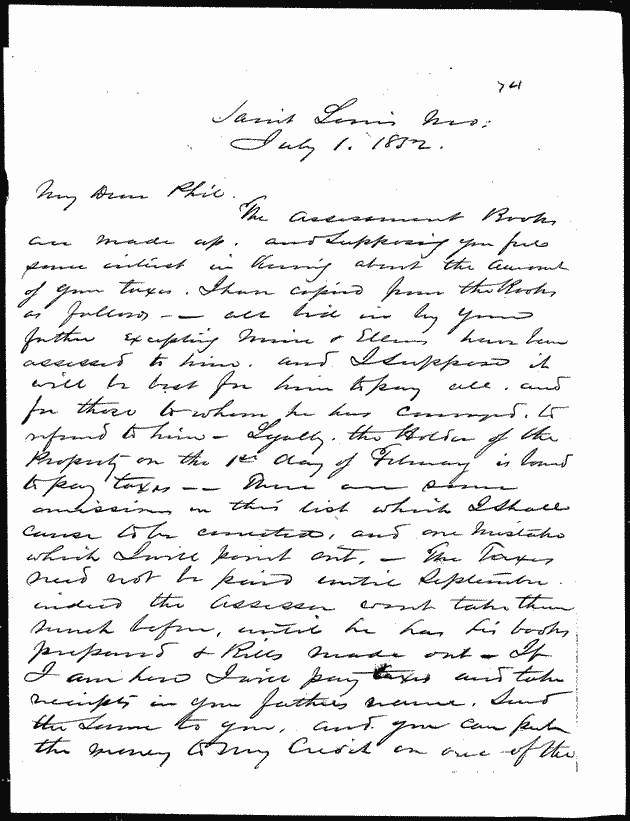 74
Saint Louis Mo:
July 1. 1852.
My Dear Phil.
The Assessment Books
are made up. and supposing you feel
some interest in knowing about the amount
of your taxes. I have copied from the Books
as follows — — all bid in by your
father excepting Mine & Ellens have been
assessed to him. and I suppose it
will be best for him to pay all. and
for those to whom he has conveyed. to
refund to him — Legally. the Holder of the
Property on the 1st day of February is bound
to pay taxes — — There are some
omissions in this list which I shall
cause to be corrected, and one mistake
which I will point out. — The Taxes
need not be paid until September.
indeed the Assessor wont take them
much before, until he has his books
prepared & Bills made out — If
I am here I will pay taxes and take
receipts in your fathers name. Send
the same to you, and you can put
the money to my Credit on one of the